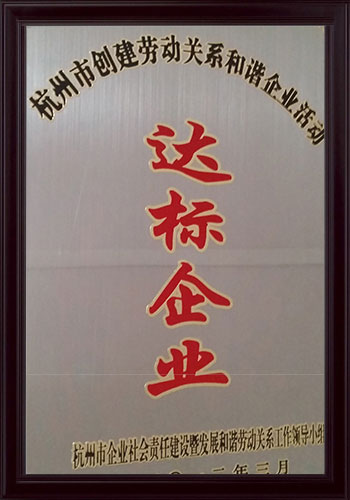 杭州市创建劳动关系和谐企业活动
达标企业
杭州市企业社会责任建设暨发展和谐劳动关系工作领导小组
年三月